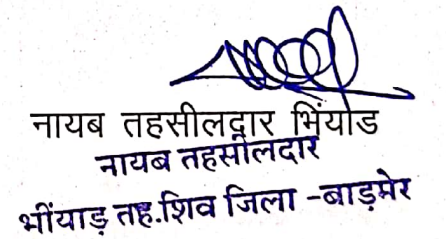 नायब तहसीलदार भिंयोड
नायब तहसीलदार
भींयाड़ तह.शिव जिला -बाड़मेर